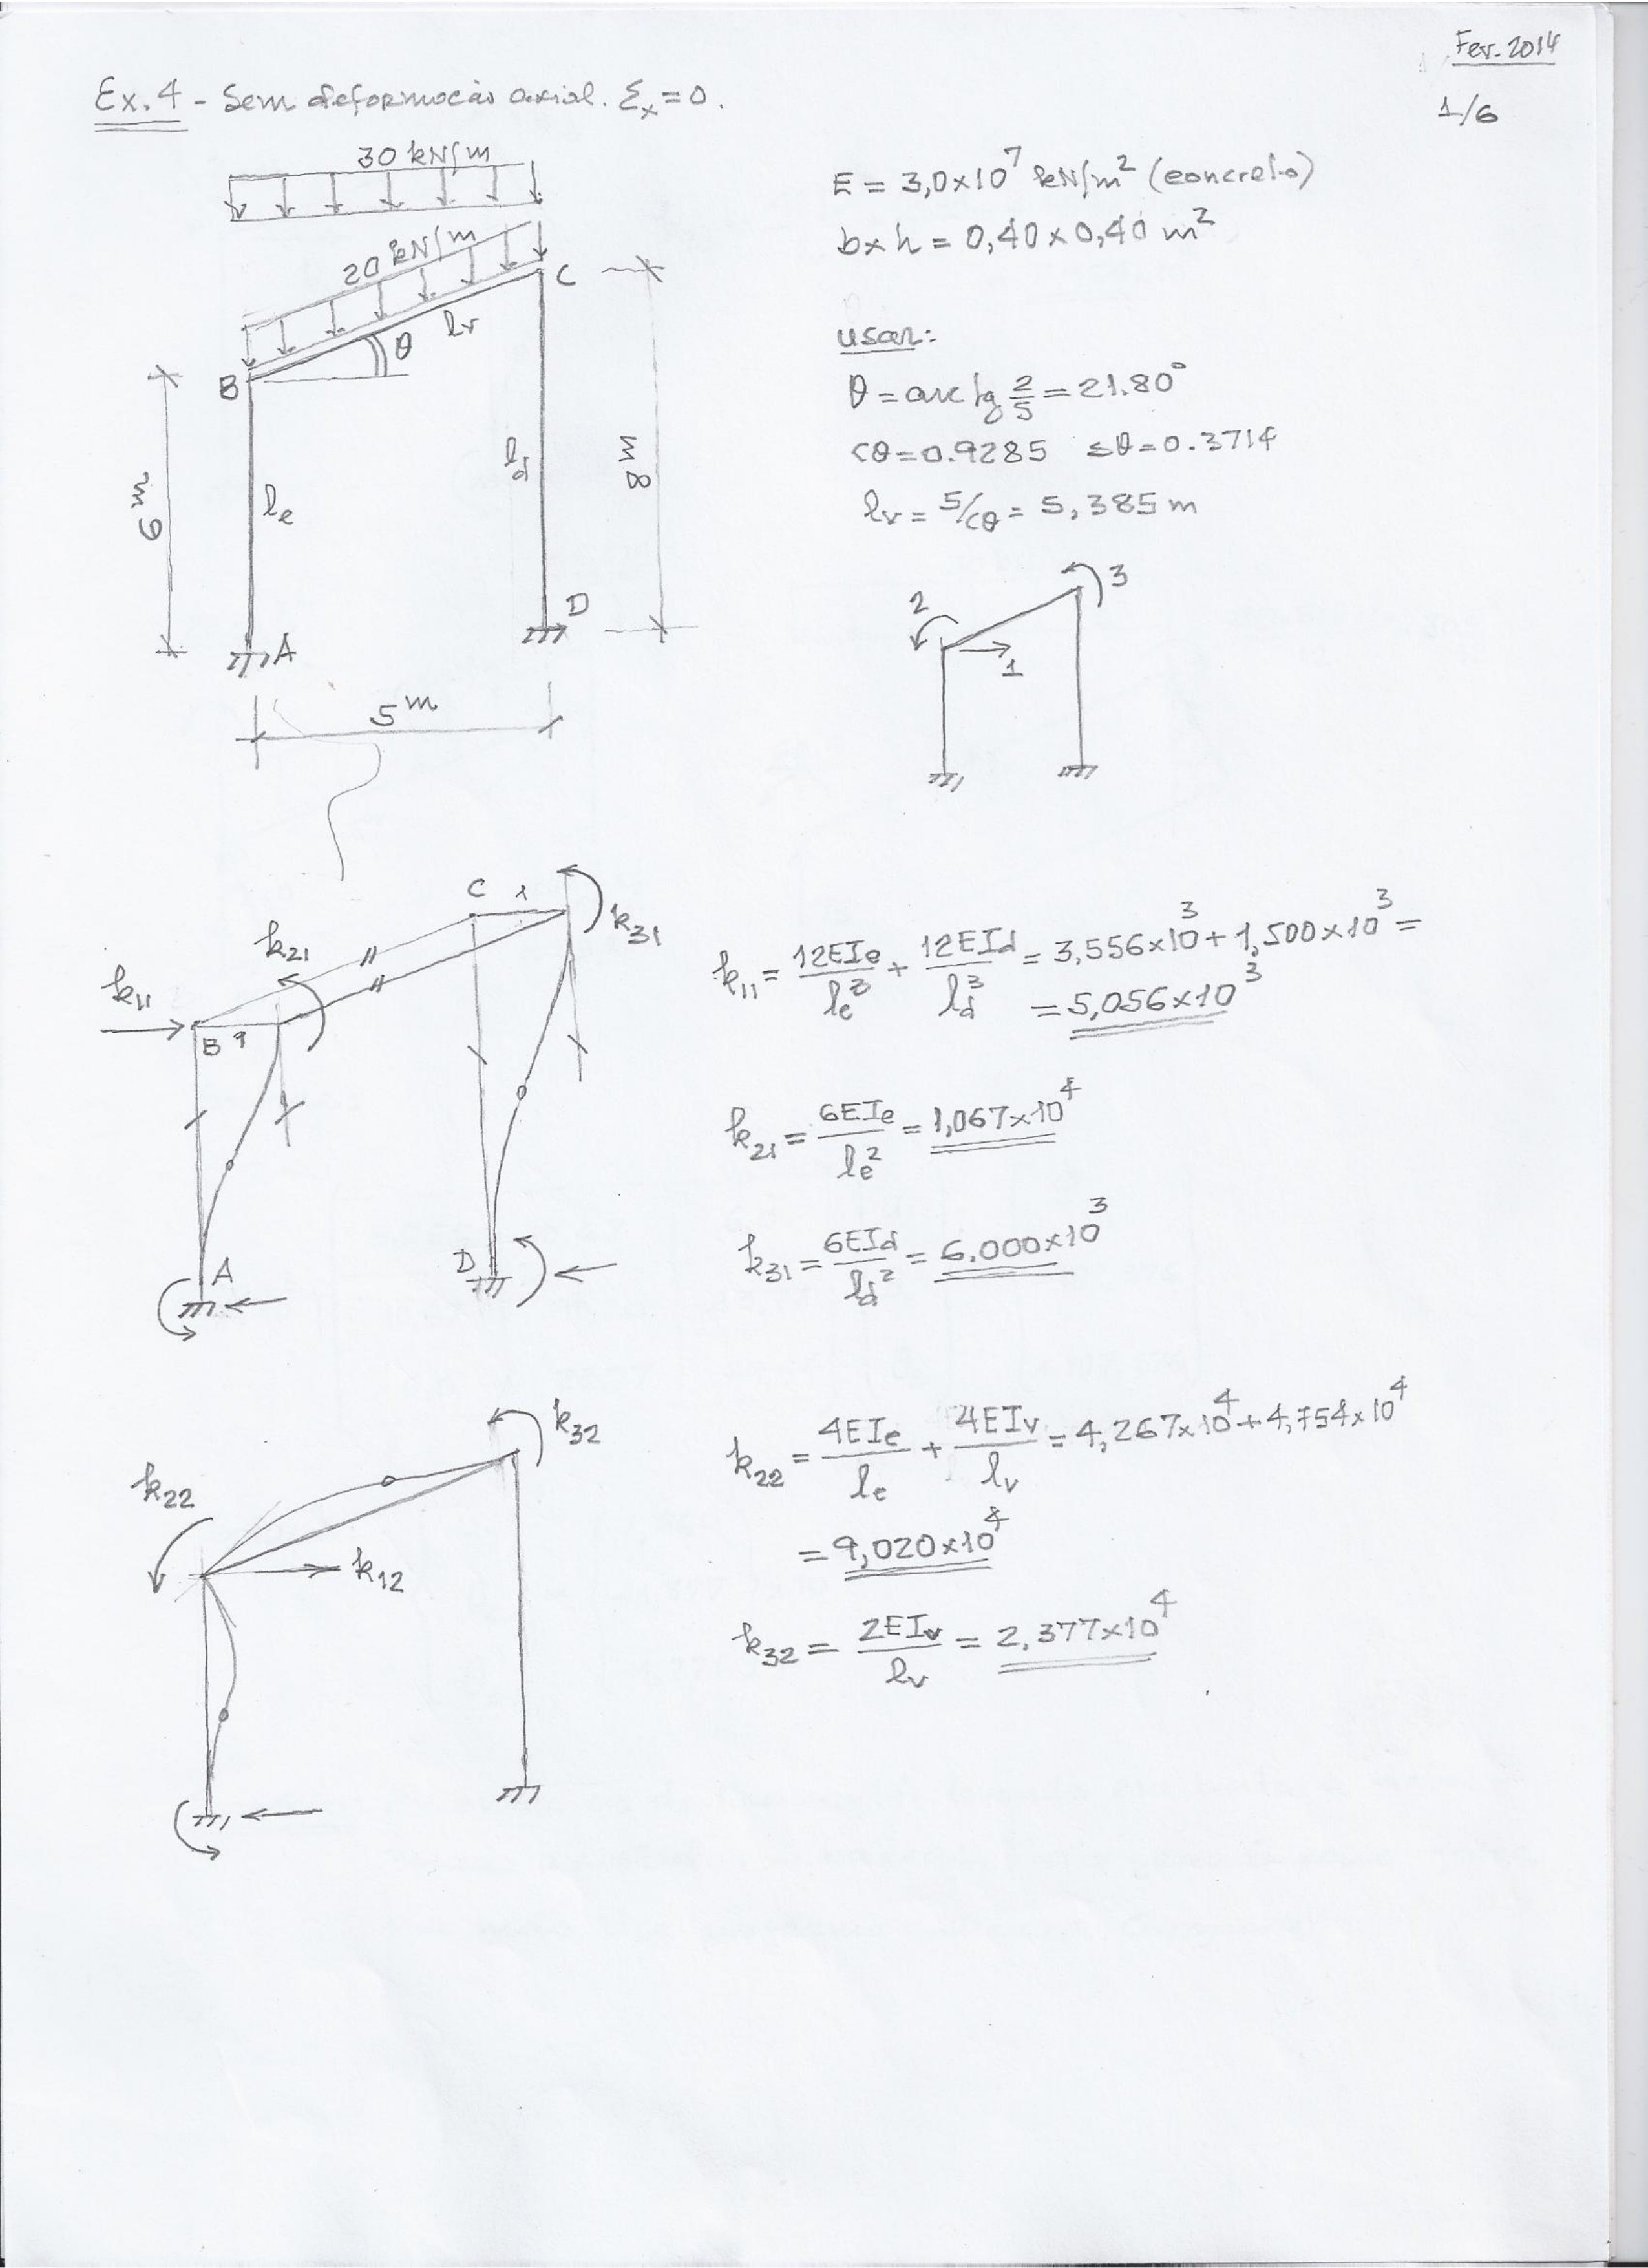 Fev. 2014
1/6
Ex. 4 - Sem deformação axial. Ɛx = 0.
30 kN/m
20 kN/m
C
θ
lv
B
6 m
le
ld
8 m
A
D
5 m
E = 3,0×10⁷ kN/m² (concreto)
b×h = 0,40×0,40 m²
usar:
θ = arc tg 2/5 = 21.80°
cθ = 0.9285 sθ = 0.3714
lv = 5/cθ = 5,385 m
2
3
1
k11
k21
k31
C
1
B
1
A
D
k11 = 12EIe/le³ + 12EId/ld³ = 3,556×10³ + 1,500×10³ =
= 5,056×10³
k21 = 6EIe/le² = 1,067×10⁴
k31 = 6EId/ld² = 6.000×10³
k22
k32
k12
k22 = 4EIe/le + 4EIv/lv = 4,267×10⁴ + 4,754×10⁴
= 9,020×10⁴
k32 = 2EIv/lv = 2,377×10⁴